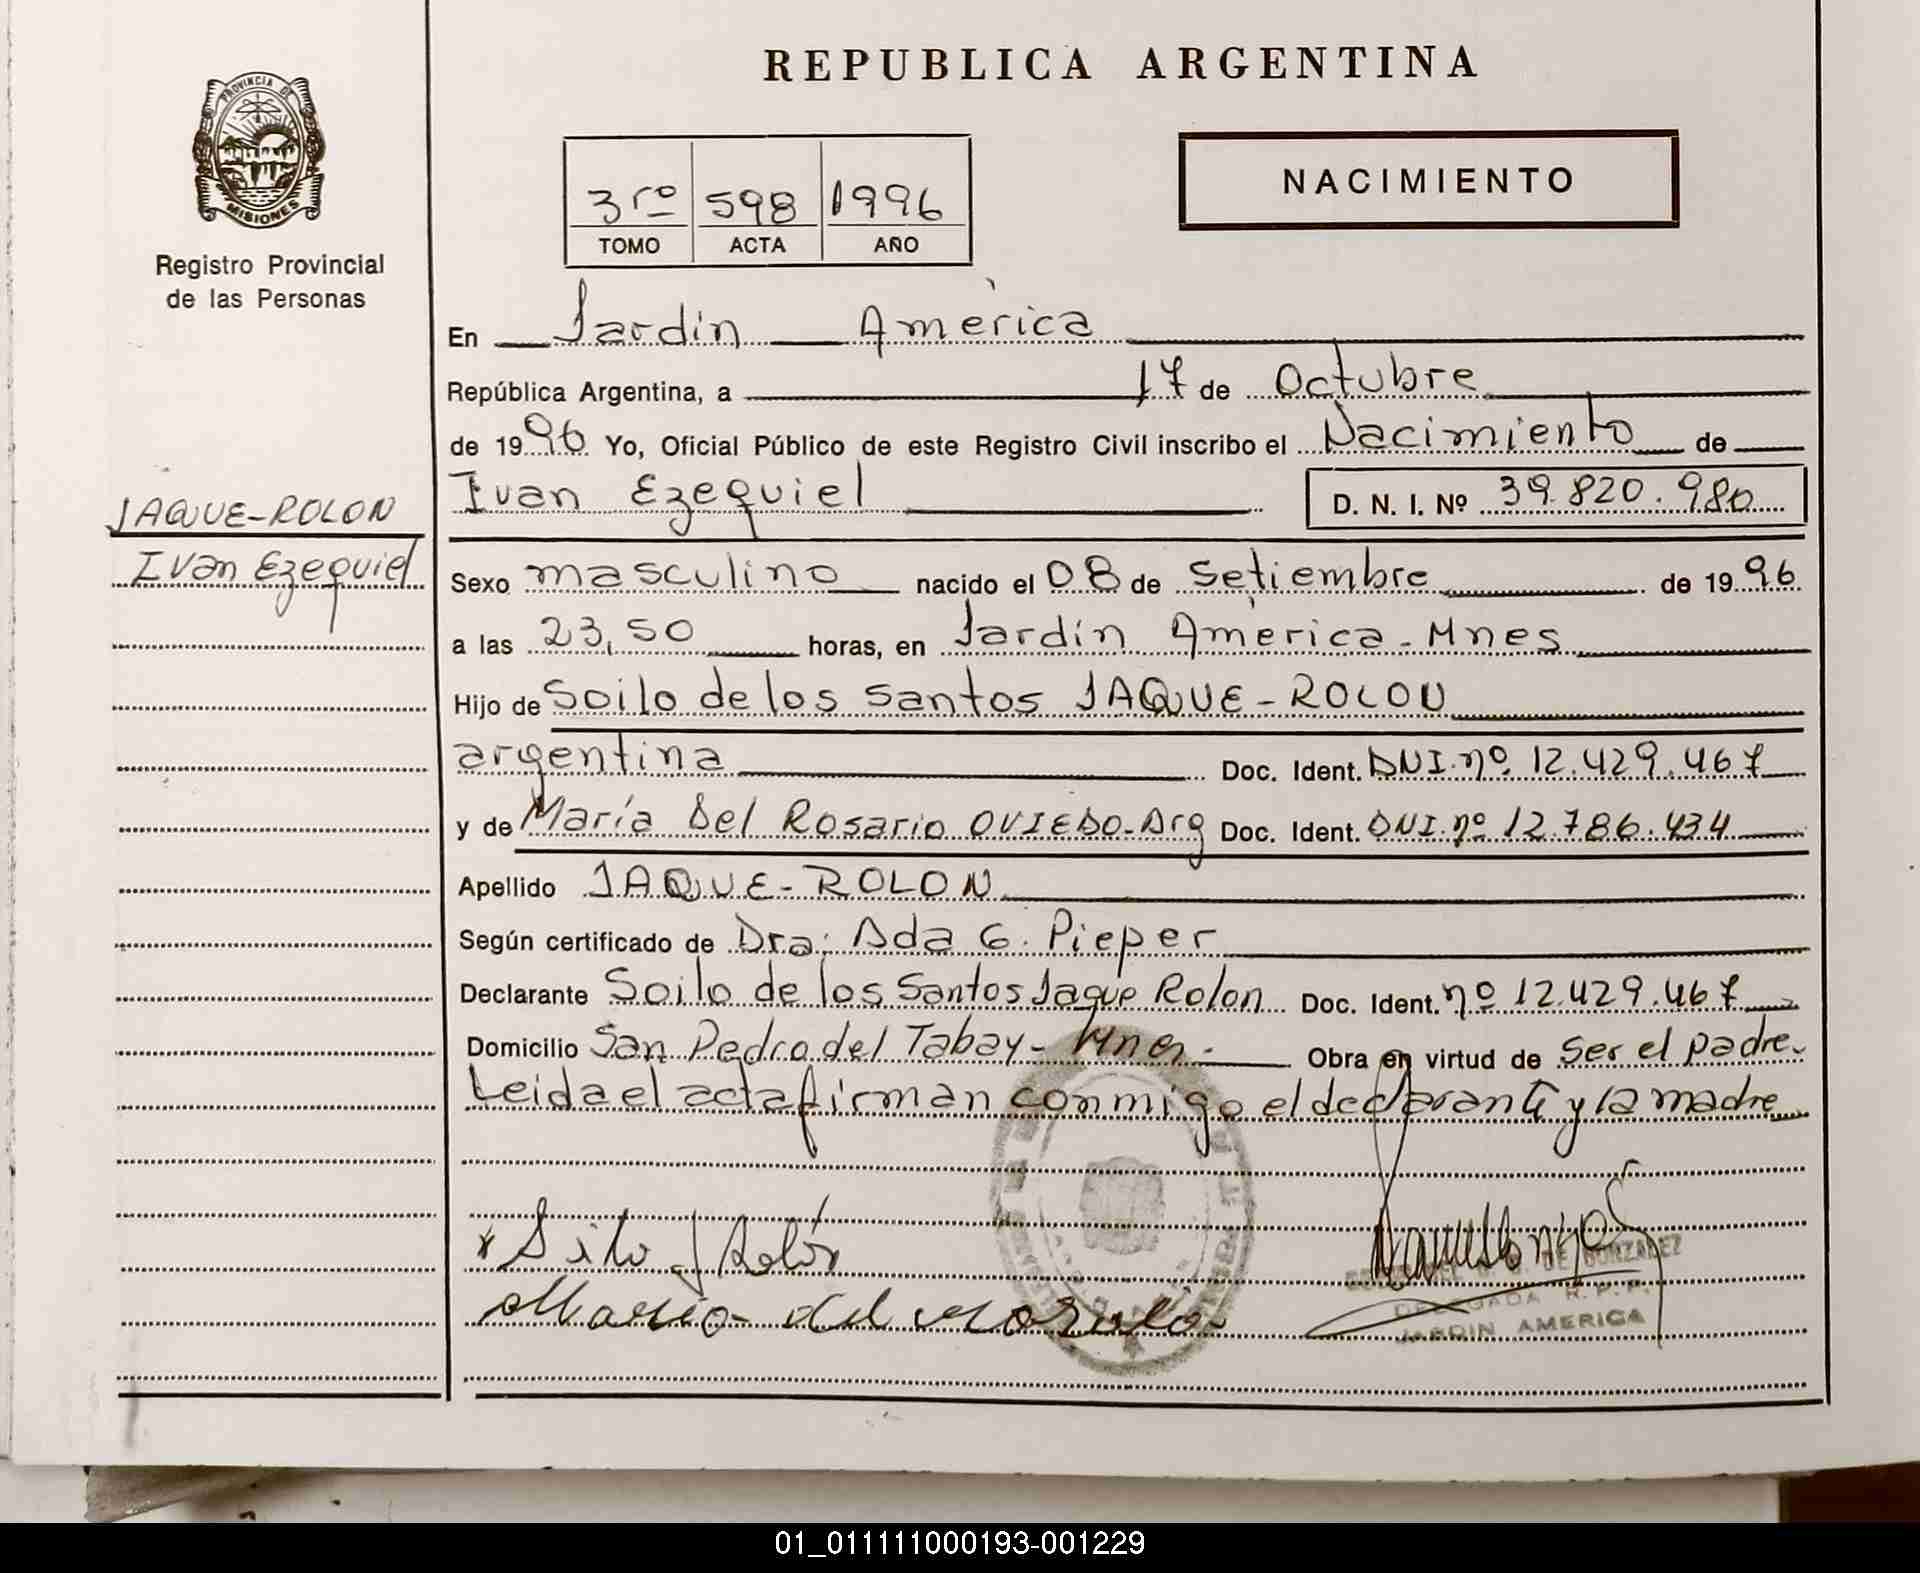 REPUBLICA ARGENTINA
PROVINCIA DE
MISIONES
Registro Provincial
de las Personas
NACIMIENTO
3ro 598 1996
TOMO ACTA AÑO
En Jardín América
República Argentina, a 17 de Octubre
de 1996 Yo, Oficial Público de este Registro Civil inscribo el Nacimiento de
Ivan Ezequiel D. N. I. Nº 39.820.980
JAQUE-ROLON
Ivan Ezequiel
Sexo masculino nacido el 08 de Setiembre de 1996
a las 23,50 horas, en Jardín América-Mnes
Hijo de Soilo de los Santos JAQUE-ROLON
argentina Doc. Ident. DNI.nº.12.429.467
y de María Del Rosario OVIEDO-Arg Doc. Ident. DNI.nº 12.786.434
Apellido JAQUE-ROLON
Según certificado de Dra: Ada G. Pieper
Declarante Soilo de los Santos Jaque Rolon Doc. Ident. nº 12.429.467
Domicilio San Pedro del Tabay- Mnes- Obra en virtud de ser el padre.
Leida el acta firman conmigo el declarante y la madre
Silo J Rolón
DE GONZALEZ
María del Rosario
DELEGADA R. P. P.
JARDIN AMERICA
01_011111000193-001229